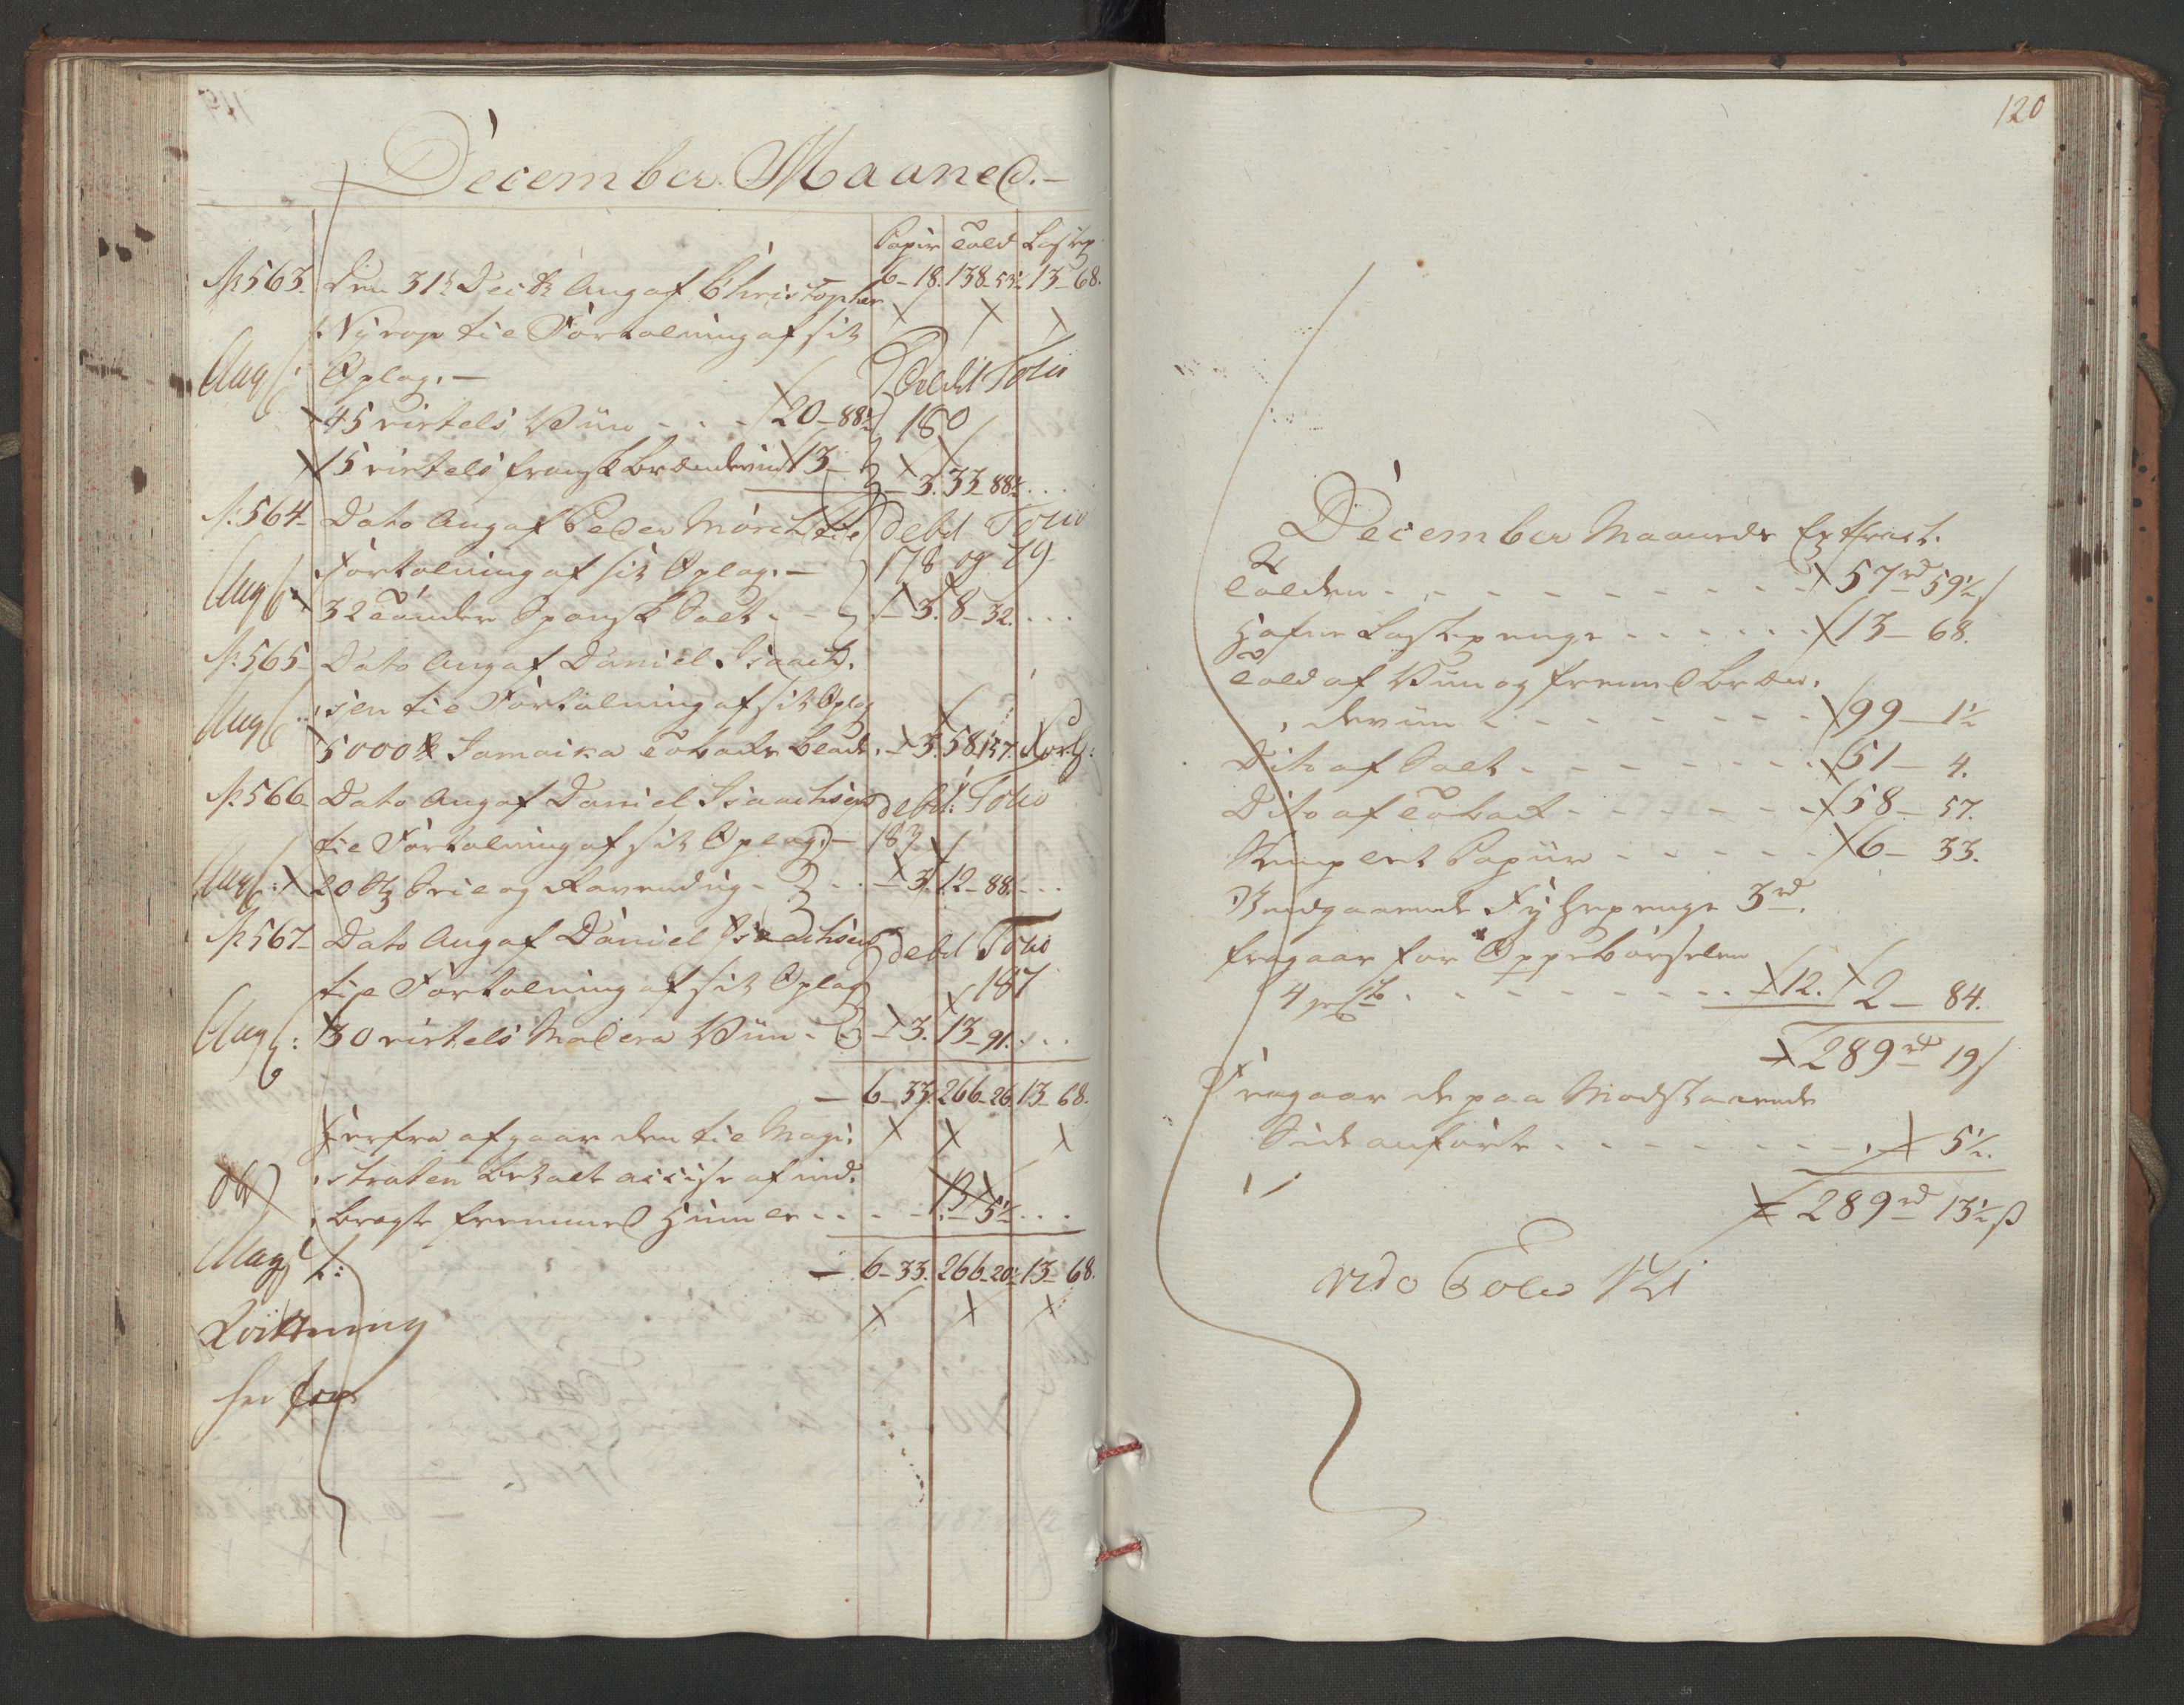 December Maaned.
Papir Told Lastep
No 563. Den 31te Decbr Ang af Christopher 6-18. 138-53½ 13-68.
Nyrop til Fortolning af sit
Ang Oplag.- Debit Folio
45 virtels Viin - - - 20-88½ 180
15 virtels fransk Brændeviin 13- -3. 33-88½ ...
No 564 Dato Ang af Peder Mörch til debd Folio
Fortolning af sit Oplag.- 178 og 79
Ang 32 Tönder Spansk Salt - - -3. 8-32. ...
No 565 Dato Ang af Daniel Isaach-
Ang sen til Fortolning af sit Oplag
5000 lb Jamaika Tobacks Blade. -3. 58.57.
No 566 Dato Ang af Daniel Isaachsen debd: Folio
til Fortolning af sit Oplag.- 183
Ang: 20 St Seil og Ravendug - -3. 12-88. ...
No 567 Dato Ang af Daniel Isaachsen debd Folio
til Fortolning af sit Oplag 187
Ang: 30 virtels Madera Viin - -3. 13-91. ...
6-33. 266-26. 13-68.
Herfra afgaar den til Magi-
straten betalt accise af ind-
bragt fremmed Humle - - - - 5½ ...
Mag t: 6-33. 266-20½ 13-68.
Qvittering
her for
120
December Maaneds Extract.
Tolden - - - - - - - - - 57rd 59½ s
Hafne Lastepenge - - - - - - 13- 68.
Told af Viin og fremmed Bræn-
deviin - - - - - - - - 99- 1½
Dito af Salt - - - - - - - 51- 4.
Dito af Toback - - - - - - 58- 57.
Stemplet Papiir - - - - - 6- 33.
Indgaaende Fyhrpenge 3rd.
fragaar for Oppebörselen
4 prCto - - - - - - - - -12. 2- 84.
289rd 19 s
Fragaar de paa Modstaaende
Side anförte - - - - - - - 5½.
289rd 13½ s
vido Folio 121